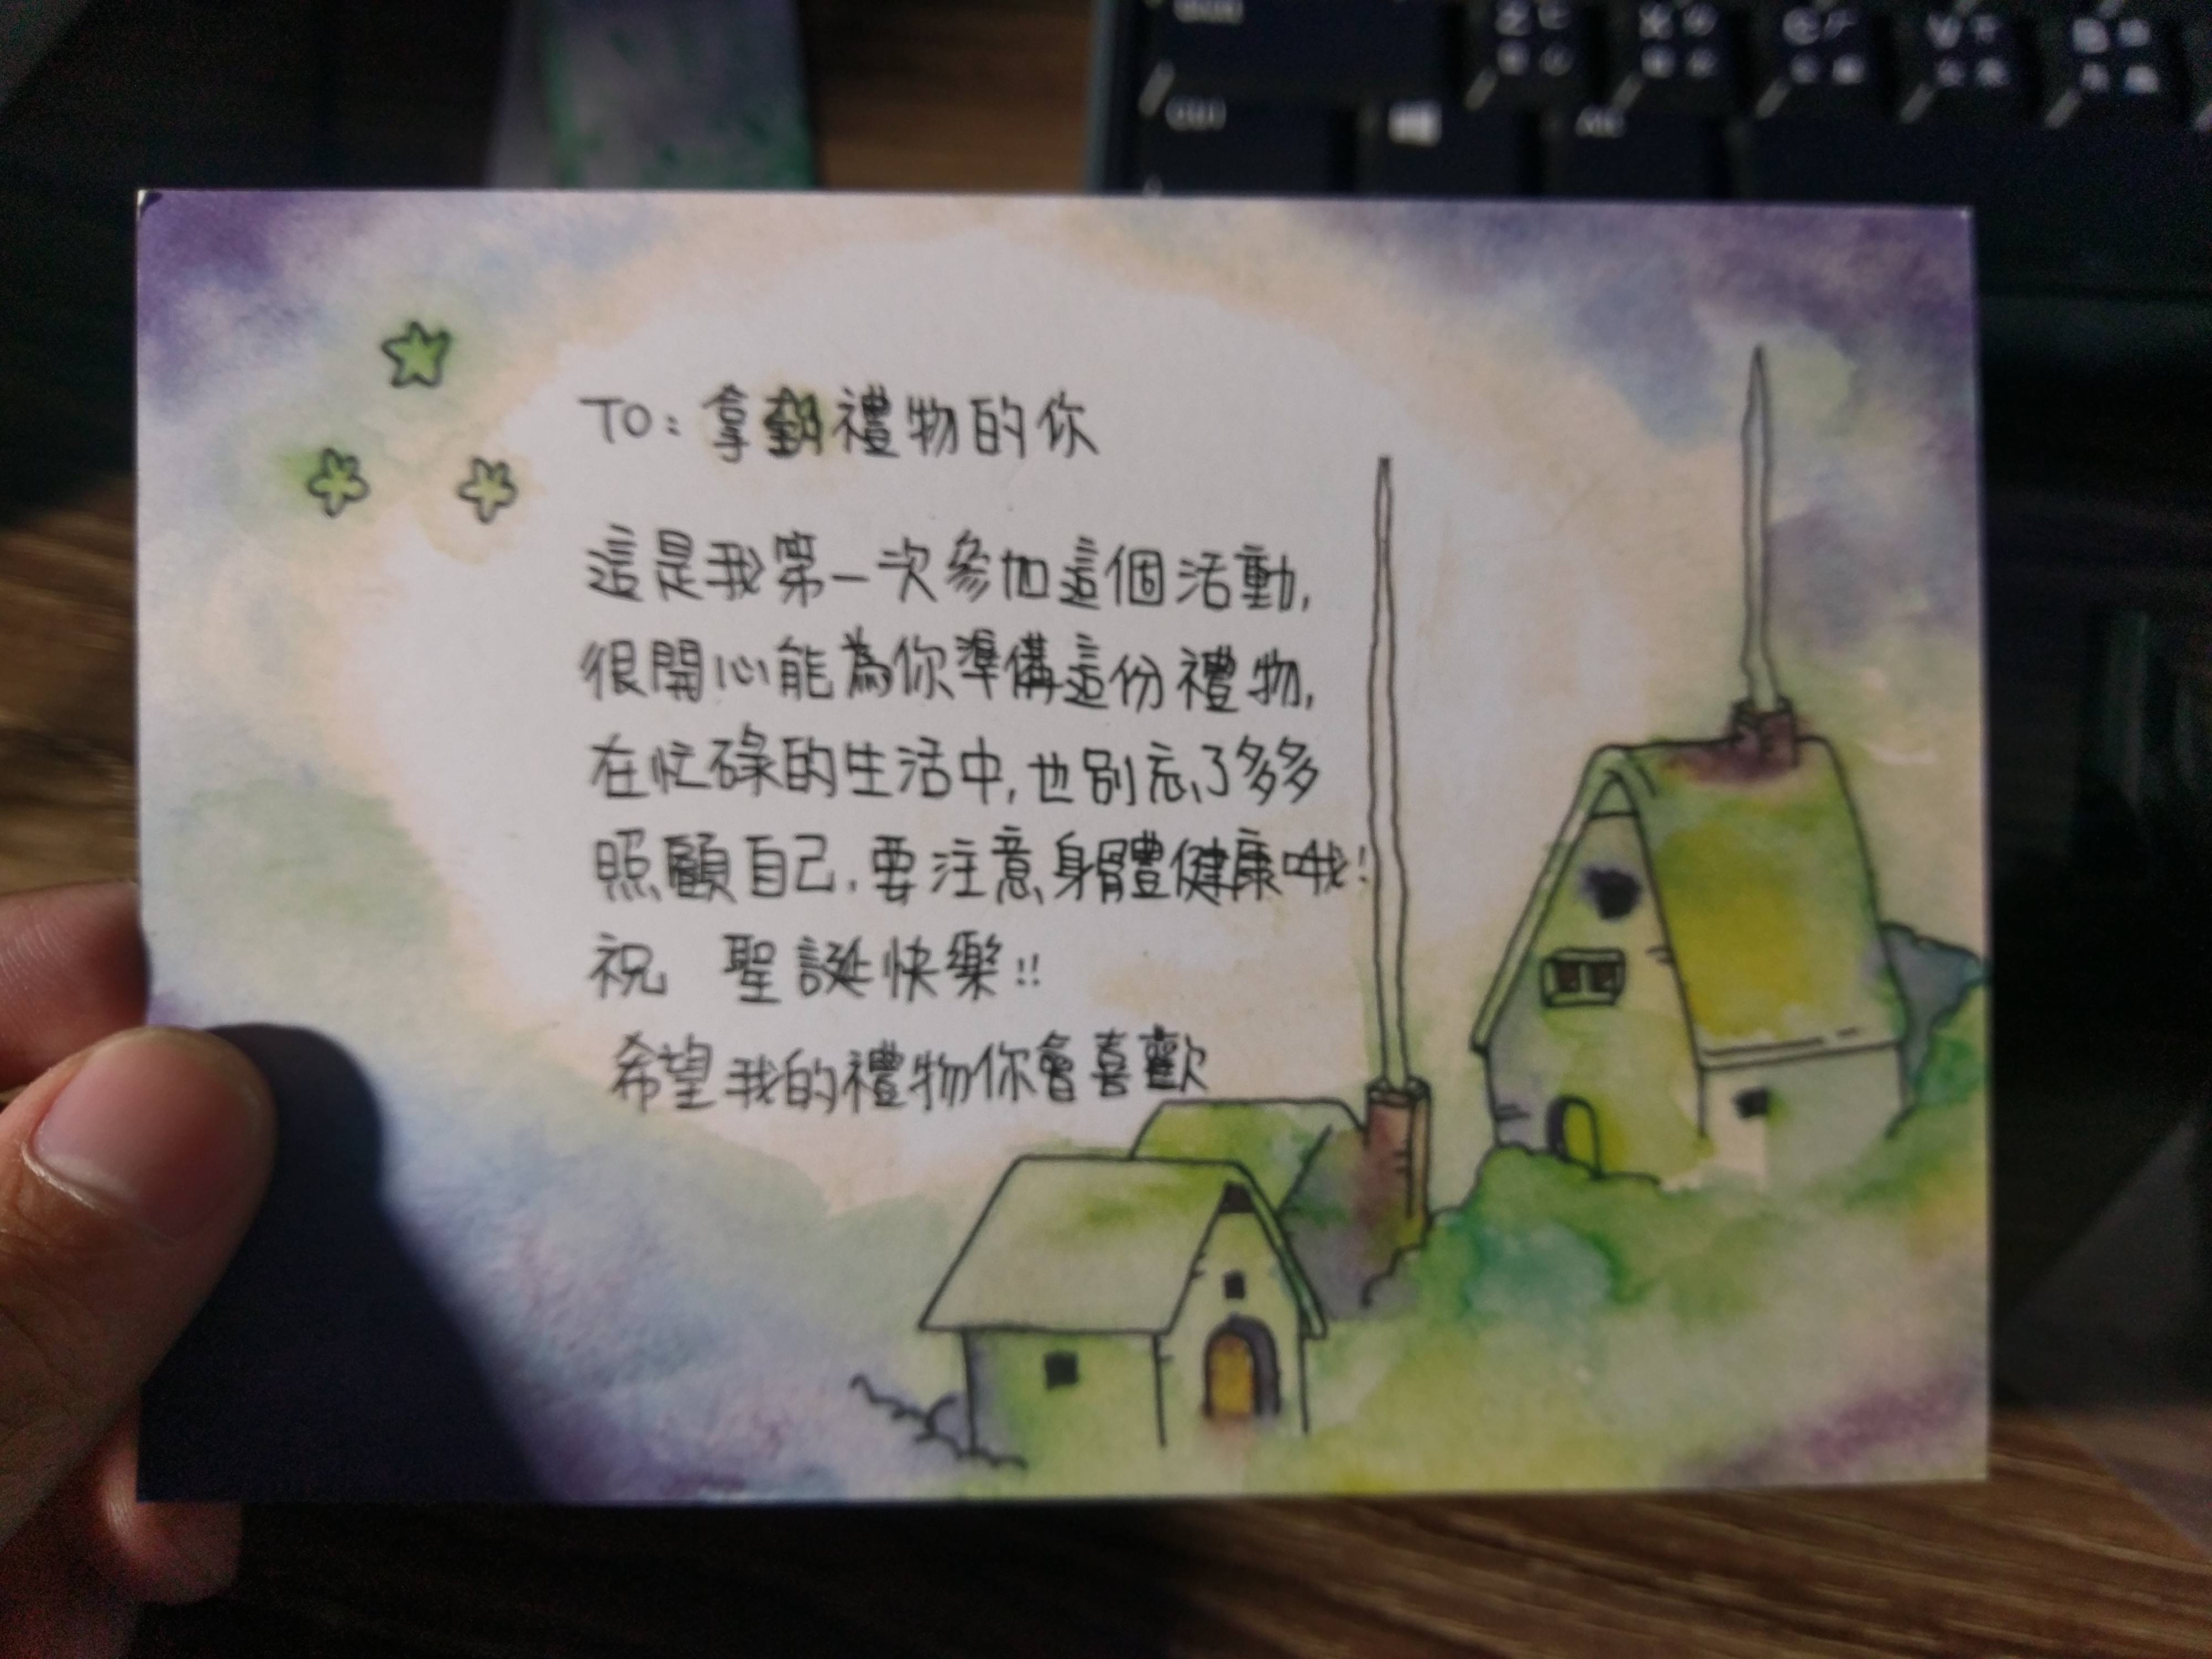 TO: 拿到禮物的你
這是我第一次參加這個活動,
很開心能為你準備這份禮物,
在忙碌的生活中,也別忘了多多
照顧自己.要注意身體健康哦!
祝 聖誕快樂!!
希望我的禮物你會喜歡